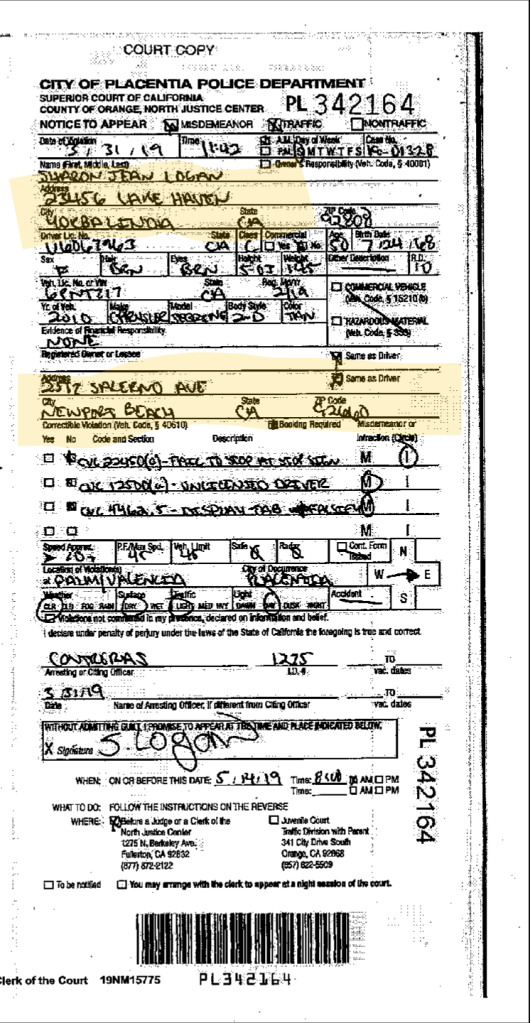 COURT COPY
CITY OF PLACENTIA POLICE DEPARTMENT
SUPERIOR COURT OF CALIFORNIA
COUNTY OF ORANGE, NORTH JUSTICE CENTER PL 342164
NOTICE TO APPEAR MISDEMEANOR TRAFFIC NONTRAFFIC
Date of Violation Time A.M. Day of Week Case No.
3/31/19 11:42 PM S M T W T F S 19-01328
Name (First, Middle, Last) Owner's Responsibility (Veh. Code, § 40001)
SHARON JEAN LOGAN
Address
23456 LAKE HAVEN
City State ZIP Code
CA 92808
Driver Lic. No. State Class Commercial Age Birth Date
CA C Yes No 50 7/24/68
Sex Hair Eyes Height Weight Other Description R.D.
F BRN BRN 5-03 145 10
Veh. Lic. No. or VIN State Reg. Mo/Yr COMMERCIAL VEHICLE
CA (Veh. Code, § 15210(b)
Yr. of Veh. Make Model Body Style Color HAZARDOUS MATERIAL
2010 CHRYSLER SEBRING 2-D TAN (Veh. Code, § 353)
Evidence of Financial Responsibility
NONE
Registered Owner or Lessee Same as Driver
Address Same as Driver
SALERNO AVE
City State ZIP Code
NEWPORT BEACH CA 92660
Correctible Violation (Veh. Code, § 40610) Booking Required Misdemeanor or
Yes No Code and Section Description Infraction (Circle)
CVC 22450(a) - FAIL TO STOP AT STOP SIGN M I
CVC 12500(a) - UNLICENSED DRIVER M I
CVC 4462.5 - DISPLAY TAB FALSIFY M I
M I
Speed Approx. P.F./Max Spd. Veh. Limit Safe Radar Cont. Form Issued N
Location of Violation(s) City of Occurrence W E
PALM/VALENCIA PLACENTIA
Weather Surface Traffic Light Accident S
CLR CLD FOG RAIN DRY WET LIGHT MED HVY DAWN DAY DUSK NIGHT
Violations not committed in my presence, declared on information and belief.
I declare under penalty of perjury under the laws of the State of California the foregoing is true and correct.
CONTRERAS 1275 TO
Arresting or Citing Officer I.D. # vac. dates
3/31/19 TO
Date Name of Arresting Officer, if different from Citing Officer vac. dates
WITHOUT ADMITTING GUILT, I PROMISE TO APPEAR AT THE TIME AND PLACE INDICATED BELOW.
X Signature S. Logan
WHEN: ON OR BEFORE THIS DATE: 5/14/19 Time: 8:00 AM PM
Time: AM PM
WHAT TO DO: FOLLOW THE INSTRUCTIONS ON THE REVERSE
WHERE: Before a Judge or a Clerk of the Juvenile Court
North Justice Center Traffic Division with Parent
1275 N. Berkeley Ave. 341 City Drive South
Fullerton, CA 92832 Orange, CA 92868
(877) 872-2122 (657) 622-5509
To be notified You may arrange with the clerk to appear at a night session of the court.
PL 342164
Clerk of the Court 19NM15775 PL342164